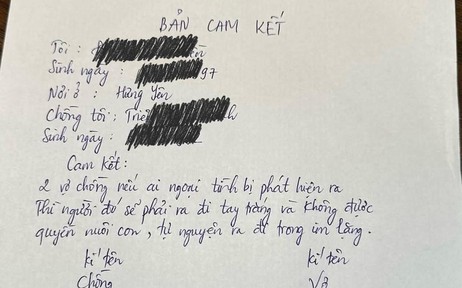 BẢN CAM KẾT
Tôi :
Sinh ngày : 97
Nơi ở : Hưng Yên
Chồng tôi : Triệ
Sinh ngày :
Cam kết :
2 vợ chồng nếu ai ngoại tình bị phát hiện ra
Thì người đó sẽ phải ra đi tay trắng và không được
quyền nuôi con, tự nguyện ra đi trong im lặng.
kí tên kí tên
Chồng Vợ